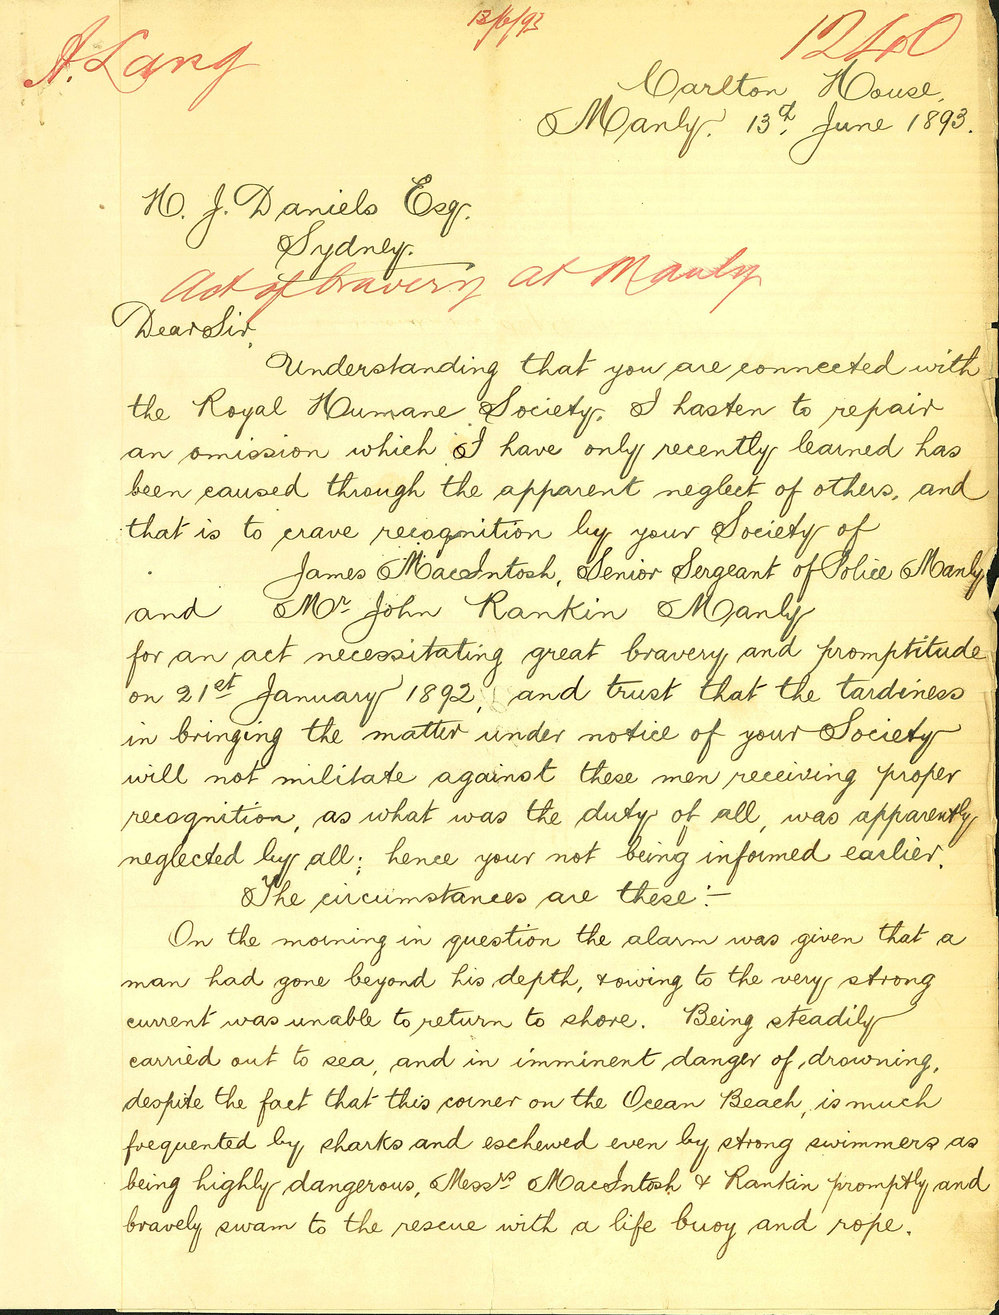 A. Lang
13/6/93
1240
Carlton House,
Manly. 13th June 1893.
H. J. Daniels Esq.
Sydney.
Act of bravery at Manly
Dear Sir,
Understanding that you are connected with
the Royal Humane Society, I hasten to repair
an omission which I have only recently learned has
been caused through the apparent neglect of others, and
that is to crave recognition by your Society of
James MacIntosh, Senior Sergeant of Police Manly
and Mr John Rankin Manly
for an act necessitating great bravery and promptitude
on 21st January 1892, and trust that the tardiness
in bringing the matter under notice of your Society
will not militate against these men receiving proper
recognition, as what was the duty of all, was apparently
neglected by all; hence your not being informed earlier.
The circumstances are these:—
On the morning in question the alarm was given that a
man had gone beyond his depth, & owing to the very strong
current was unable to return to shore. Being steadily
carried out to sea, and in imminent danger of drowning,
despite the fact that this corner on the Ocean Beach, is much
frequented by sharks and eschewed even by strong swimmers as
being highly dangerous, Messrs MacIntosh & Rankin promptly and
bravely swam to the rescue with a life buoy and rope.